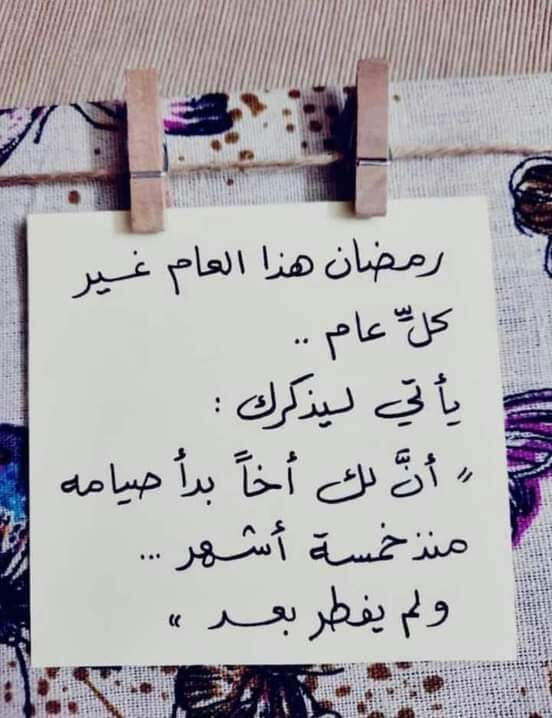 رمضان هذا العام غير
كلِّ عام ..
يأتي ليذكرك :
" أنَّ لك أخاً بدأ صيامه
منذ خمسة أشهر ...
ولم يفطر بعد "